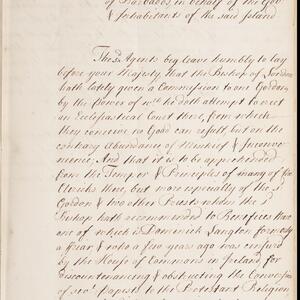 of Barbados in behalf of the Gov.
& Inhabitants of the said Island
The s.d Agents beg leave humbly to lay
before your Majesty, That the Bishop of London
hath lately given a Commission to one Gordon
by the power of w.ch he doth attempt to erect
an Ecclesiastical Court there, from which
they conceive no Good can result but on the
contrary Abundance of Mischief & Inconve-
nience; And that it is to be apprehended
from the Temper & Principles of many of the
Clericks there, but more especially of the s.d
Gordon & two other Priests whom the s.d
Bishop hath recommended to Benefices there
one of which is Dominick Langton formerly
a Fryar & who a few years ago was censur'd
by the House of Commons in Ireland, for
discountenancing & obstructing the Conversion
of sev.l Papists to the Protestant Religion